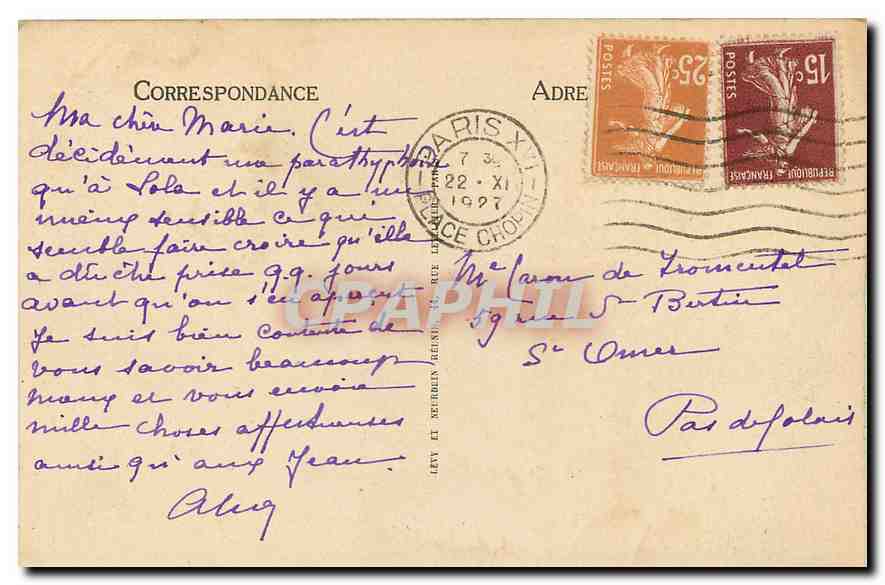 CORRESPONDANCE
Ma chère Marie. C'est
décidément une parathyphoïde
qu'a Lola et il y a un
mieux sensible ce qui
semble faire croire qu'elle
a dû être prise qq. jours
avant qu'on s'en aperçut
Je suis bien contente de
vous savoir beaucoup
mieux et vous envoie
mille choses affectueuses
ainsi qu'aux Jean.
ADRE
PARIS XVI
7 3
22 · XI
1927
PLACE CHOPIN
25c
POSTES
REPUBLIQUE FRANÇAISE
15c
POSTES
REPUBLIQUE FRANÇAISE
Me Caron de Fromentel
59 rue St Bertin
St Omer
Pas de Calais
LÉVY ET NEURDEIN RÉUNIS, 44, RUE LETELLIER, PARIS
CPAPHIL